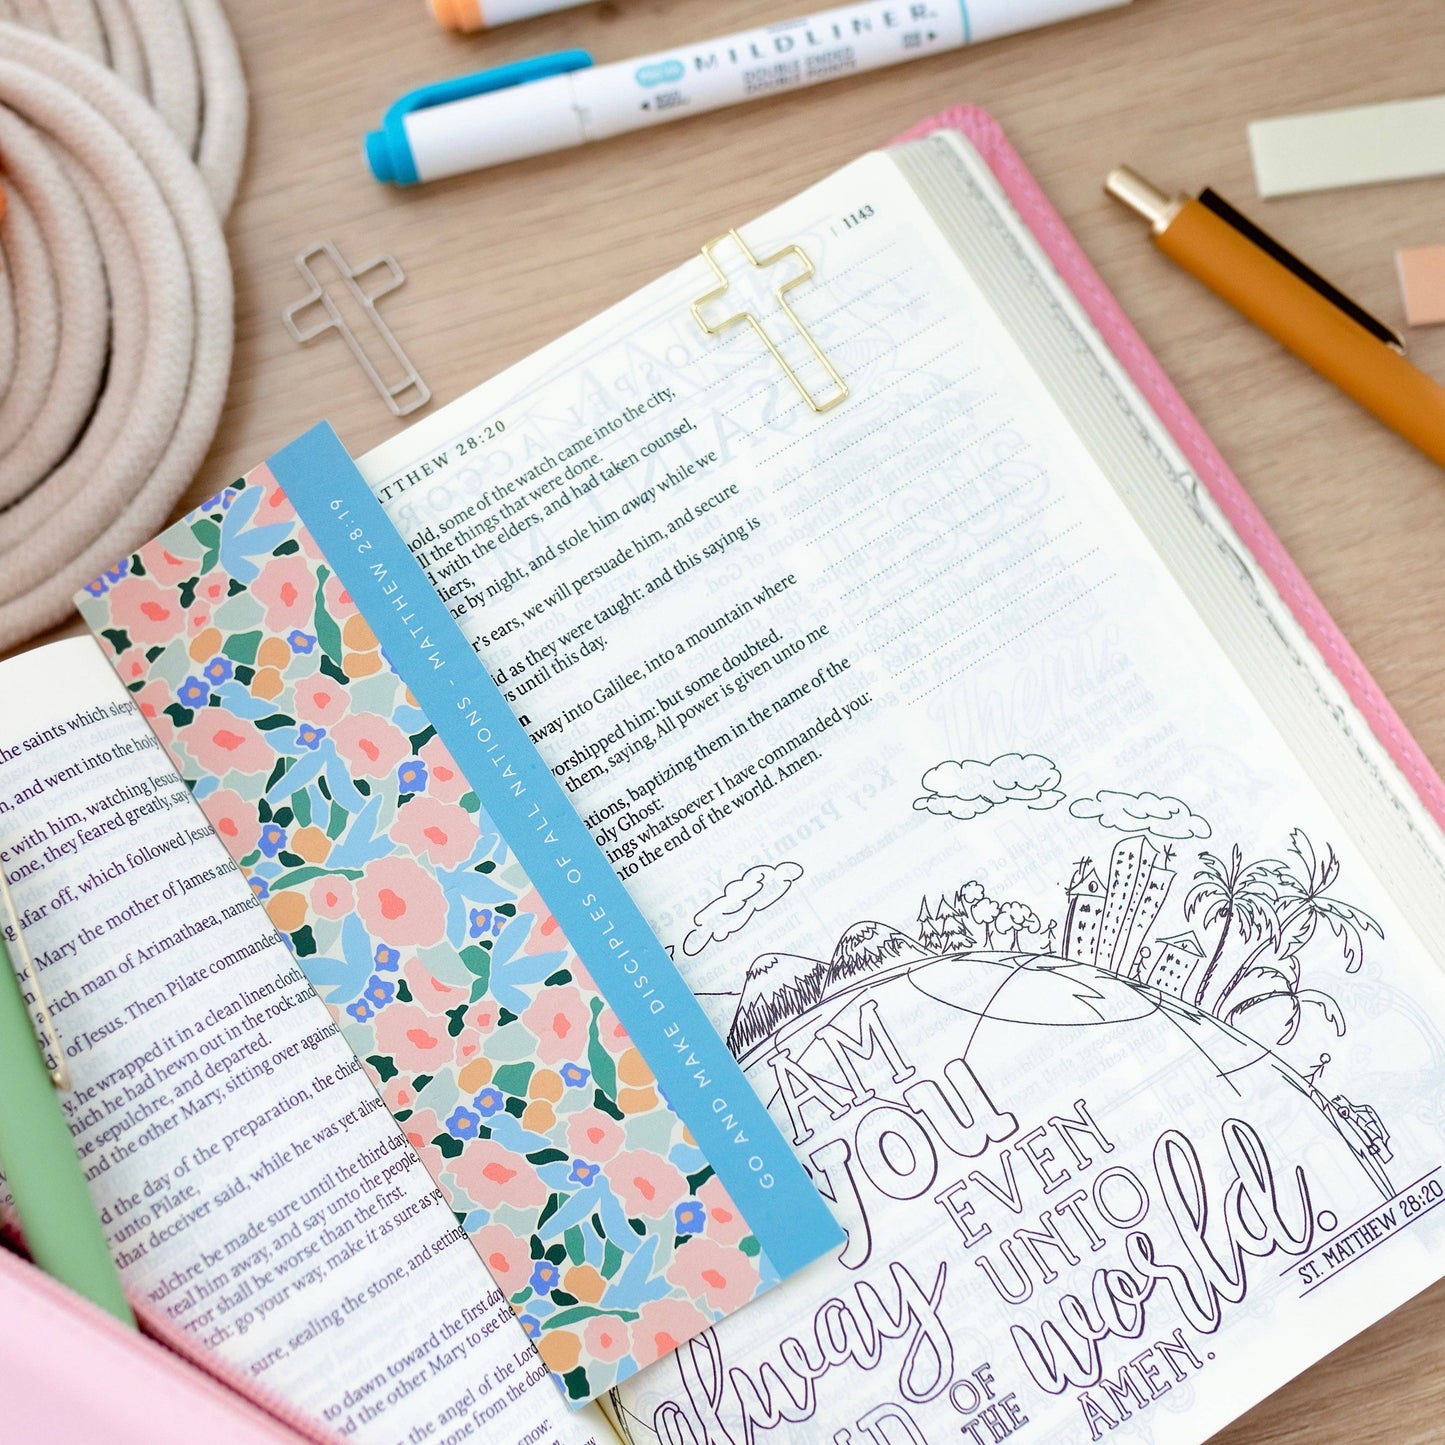 MILDLINER.
DOUBLE ENDED
DOUBLE POINTS
1143
MATTHEW 28:20
some of the watch came into the city,
the things that were done.
with the elders, and had taken counsel,
by night, and stole him away while we
ears, we will persuade him, and secure
as they were taught: and this saying is
until this day.
away into Galilee, into a mountain where
worshipped him: but some doubted.
them, saying, All power is given unto me
baptizing them in the name of the
Holy Ghost:
things whatsoever I have commanded you:
unto the end of the world. Amen.
GO AND MAKE DISCIPLES OF ALL NATIONS - MATTHEW 28:19
the saints which slept
and went into the holy
with him, watching Jesus,
done, they feared greatly, say
afar off, which followed Jesus
Mary the mother of James and
a rich man of Arimathaea, named
of Jesus. Then Pilate commanded
he wrapped it in a clean linen cloth,
which he had hewn out in the rock: and
the sepulchre, and departed.
and the other Mary, sitting over against
the day of the preparation, the chief
unto Pilate,
that deceiver said, while he was yet alive,
be made sure until the third day,
him away, and say unto the people,
error shall be worse than the first.
go your way, make it as sure as ye
sure, sealing the stone, and setting
to dawn toward the first day
and the other Mary to see the
the angel of the Lord
stone from the door,
snow:
AM
you
alway
EVEN
UNTO
OF
THE
world.
AMEN.
ST. MATTHEW 28:20